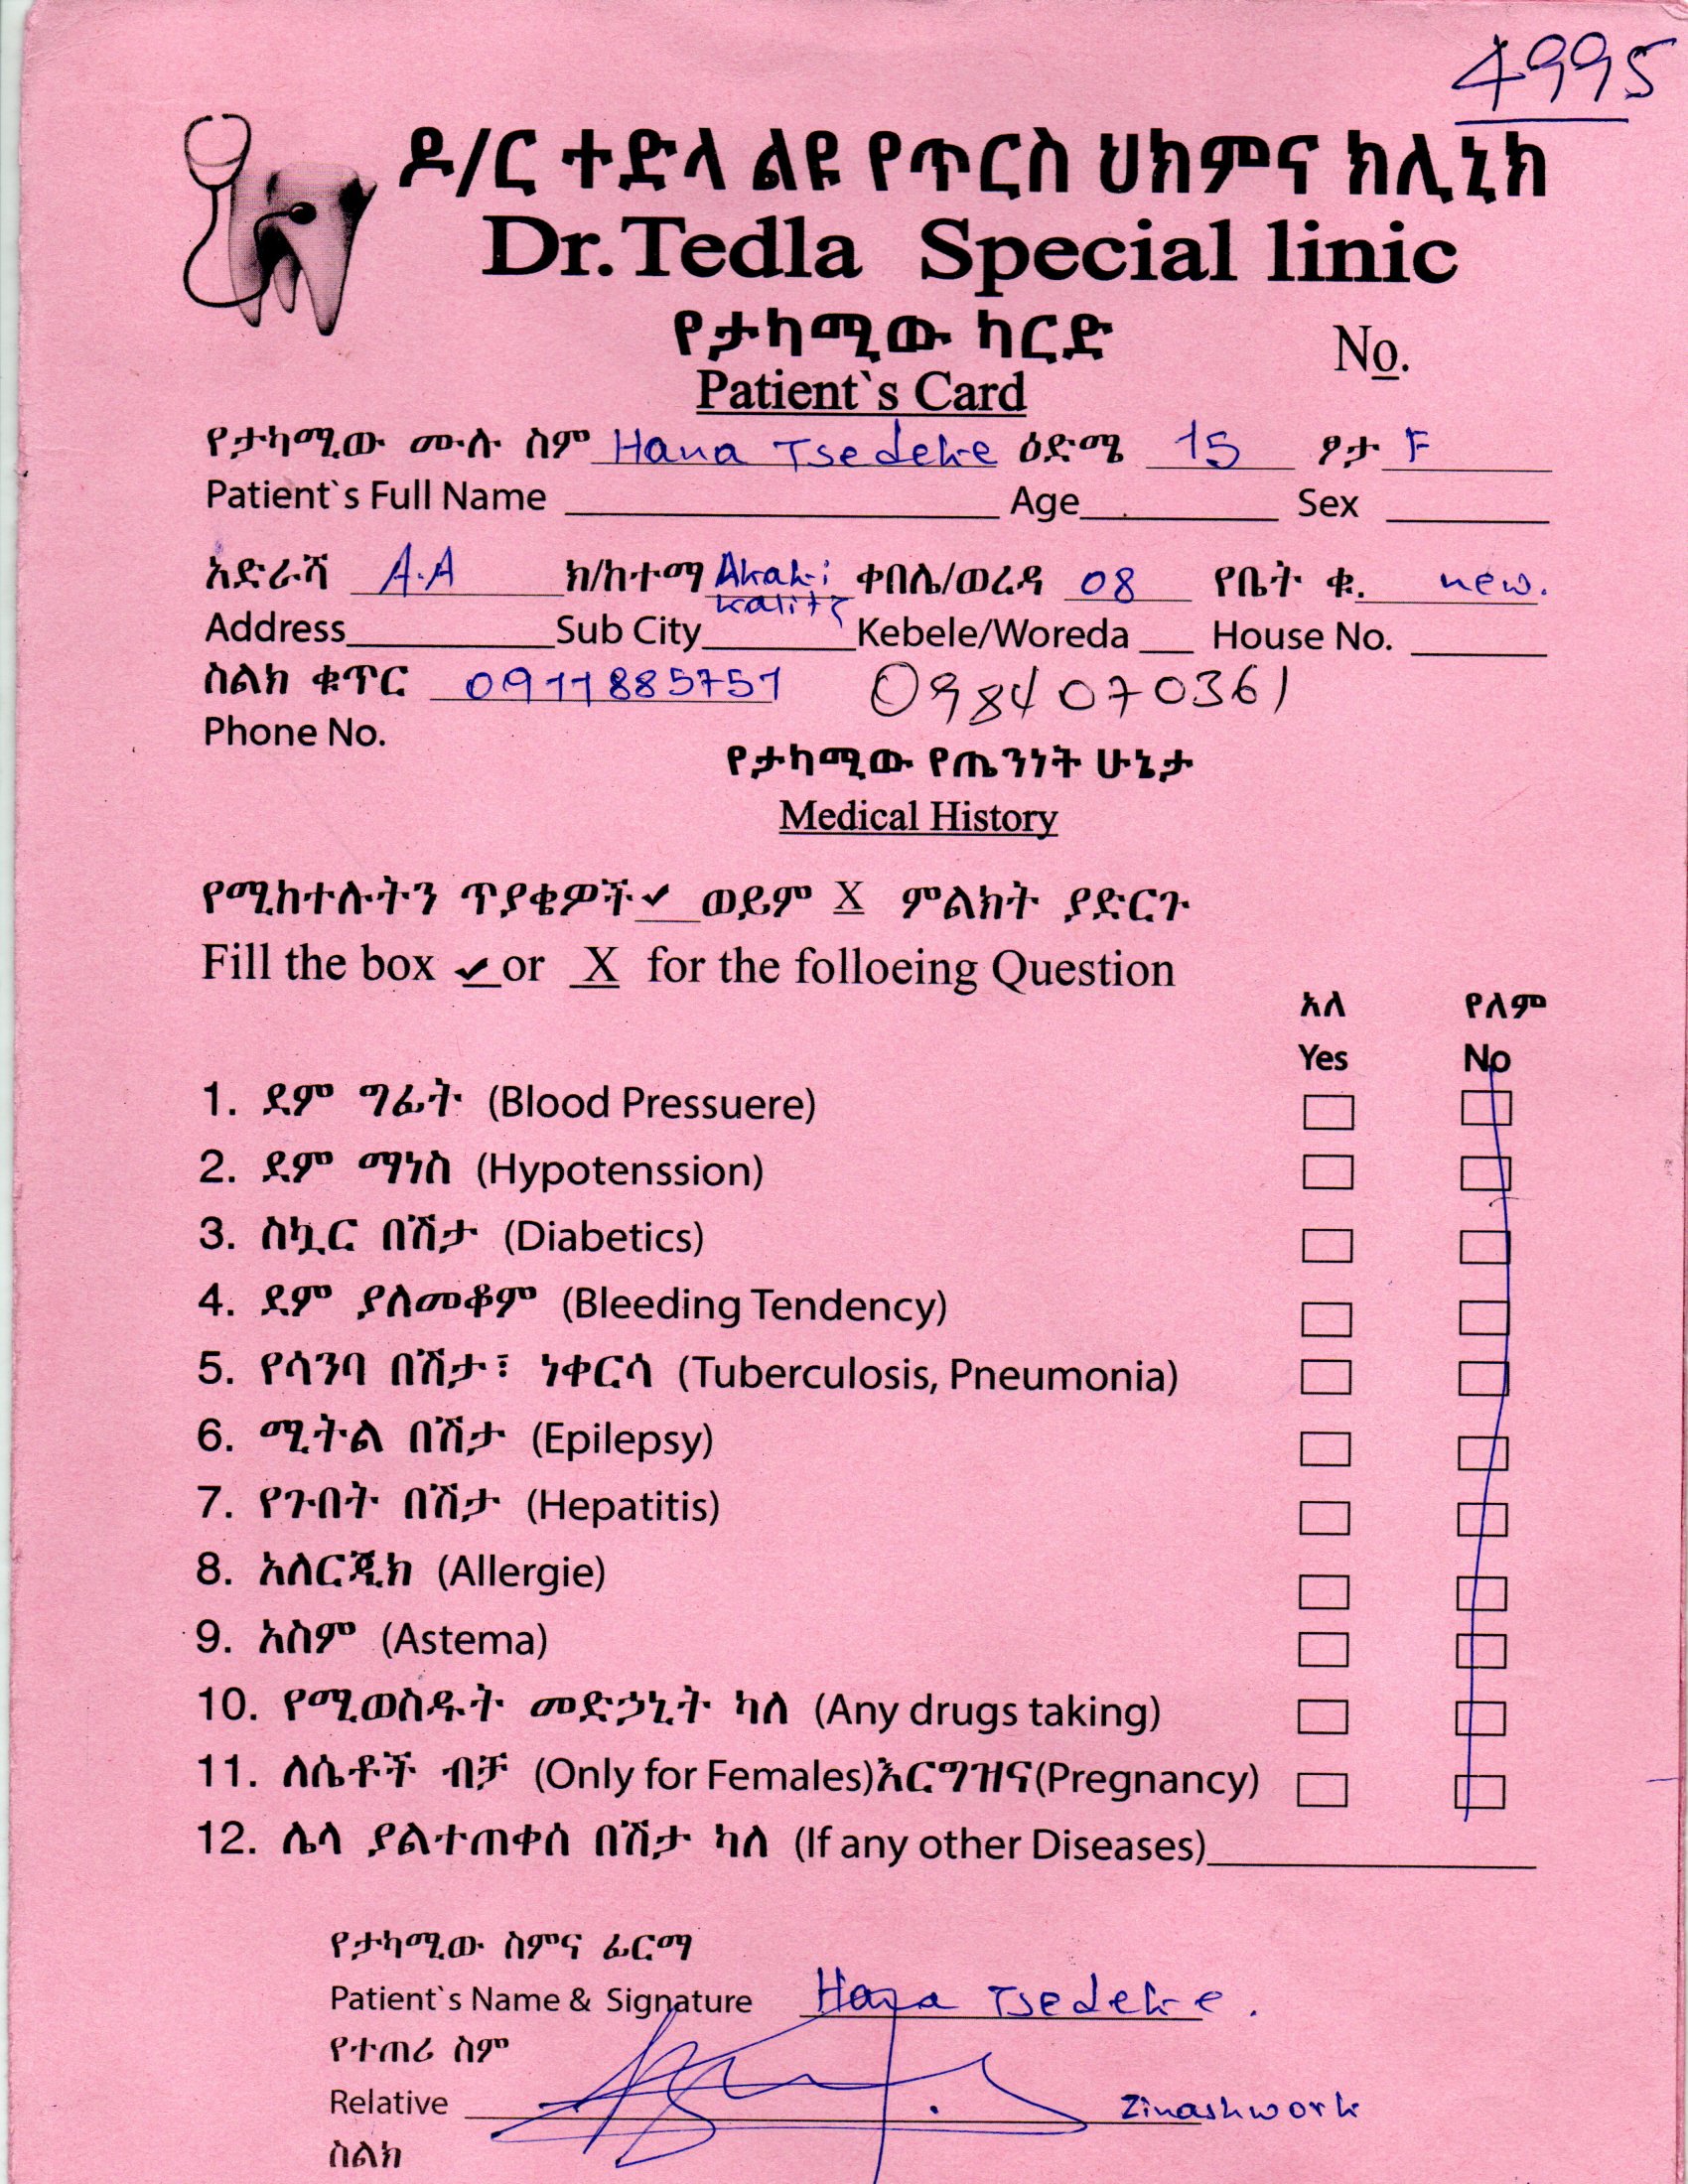 4995
ዶ/ር ተድላ ልዩ የጥርስ ህክምና ክሊኒክ
Dr.Tedla Special linic
የታካሚው ካርድ
No.
Patient`s Card
የታካሚው ሙሉ ስም Hana Tsedeke ዕድሜ 15 ፆታ F
Patient`s Full Name Age Sex
አድራሻ A.A ክ/ከተማ Akaki kality ቀበሌ/ወረዳ 08 የቤት ቁ. new.
Address Sub City Kebele/Woreda House No.
ስልክ ቁጥር 0911885751 0984070361
Phone No.
የታካሚው የጤንነት ሁኔታ
Medical History
የሚከተሉትን ጥያቄዎች ✓ ወይም X ምልክት ያድርጉ
Fill the box ✓ or X for the folloeing Question
አለ የለም
Yes No
1. ደም ግፊት (Blood Pressuere)
2. ደም ማነስ (Hypotenssion)
3. ስኳር በሽታ (Diabetics)
4. ደም ያለመቆም (Bleeding Tendency)
5. የሳንባ በሽታ፣ ነቀርሳ (Tuberculosis, Pneumonia)
6. ሚትል በሽታ (Epilepsy)
7. የጉበት በሽታ (Hepatitis)
8. አለርጂክ (Allergie)
9. አስም (Astema)
10. የሚወስዱት መድኃኒት ካለ (Any drugs taking)
11. ለሴቶች ብቻ (Only for Females)እርግዝና(Pregnancy)
12. ሌላ ያልተጠቀሰ በሽታ ካለ (If any other Diseases)
የታካሚው ስምና ፊርማ
Patient`s Name & Signature Hana Tsedeke.
የተጠሪ ስም
Relative Zinashwork
ስልክ